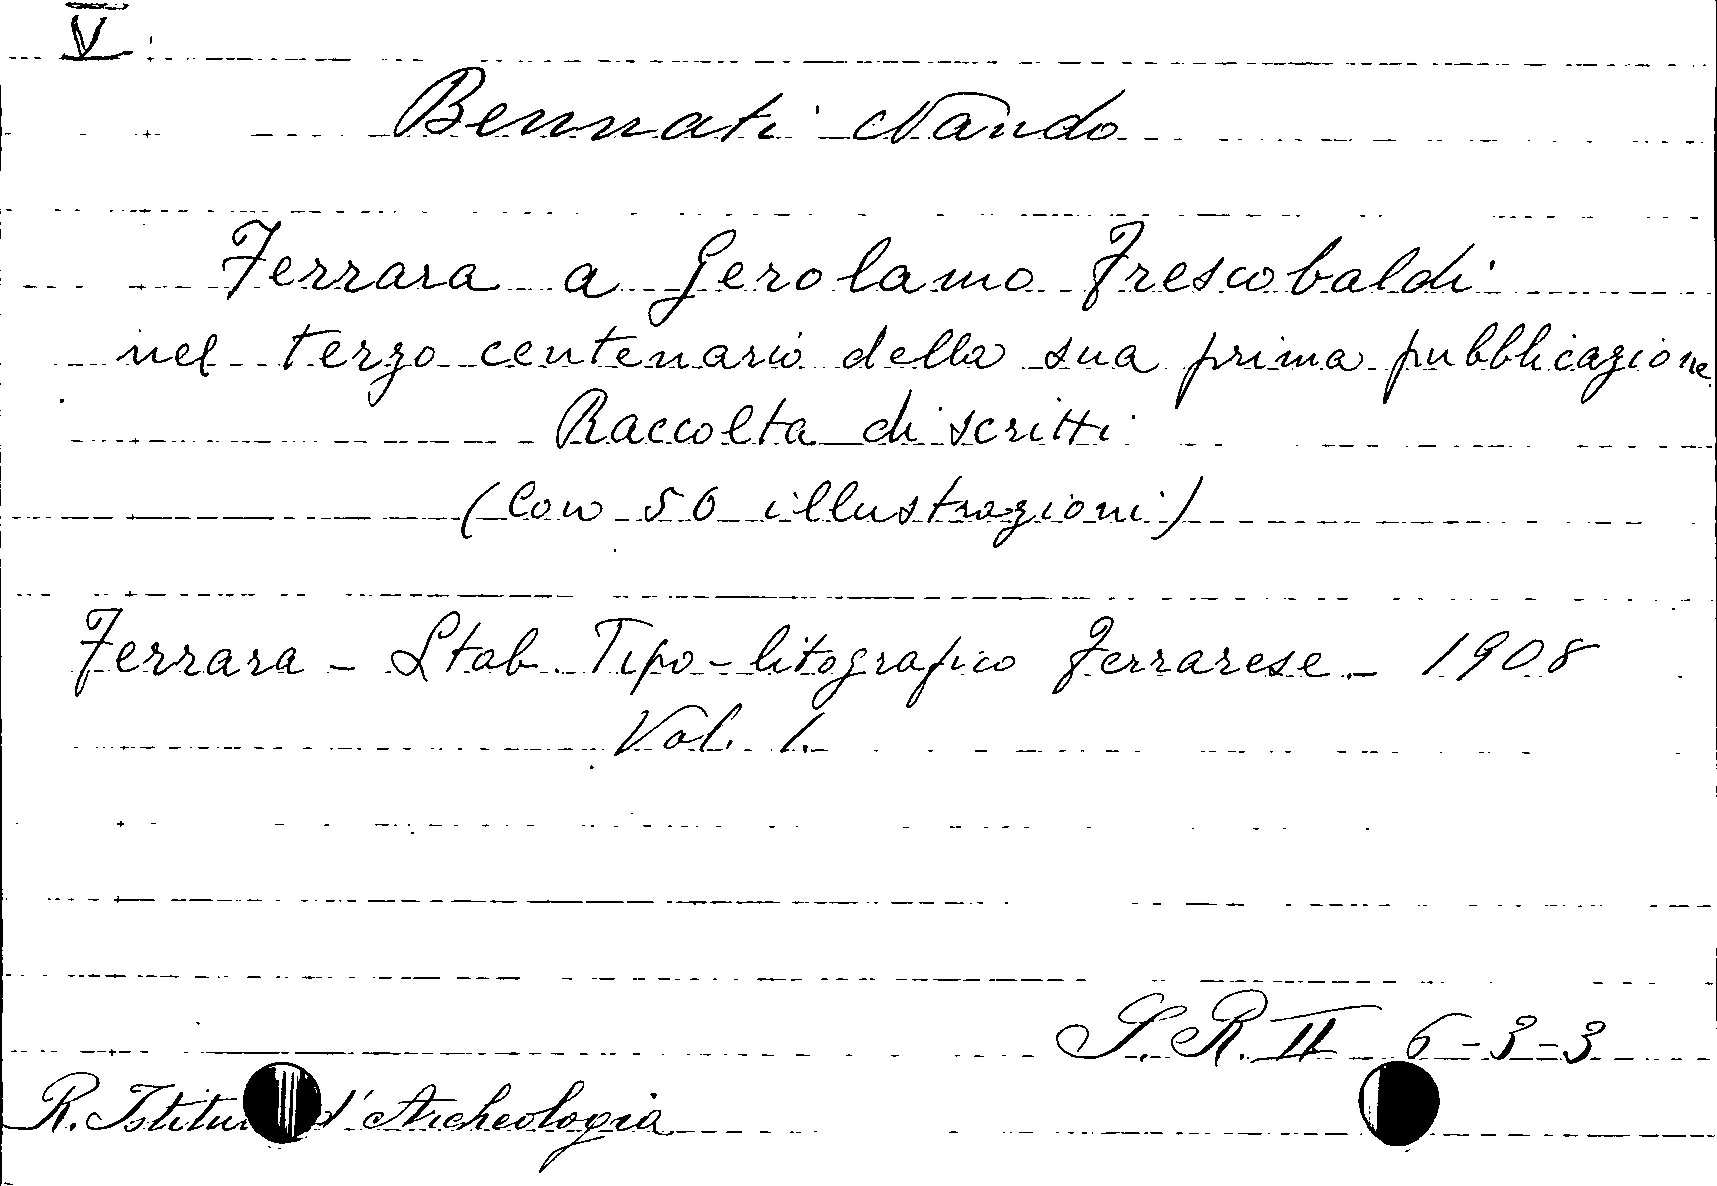 V
Bennati Nando
Ferrara a Gerolamo Frescobaldi
nel terzo centenario della sua prima pubblicazione
Raccolta di scritti
(Con 50 illustrazioni)
Ferrara - Stab. Tipo-litografico Ferrarese - 1908
Vol. 1.
S. R. II 6-3-3
R. Istitu d'Archeologia